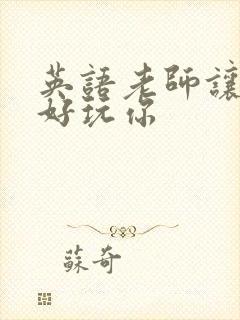 英語老師讓
好玩你
蘇奇